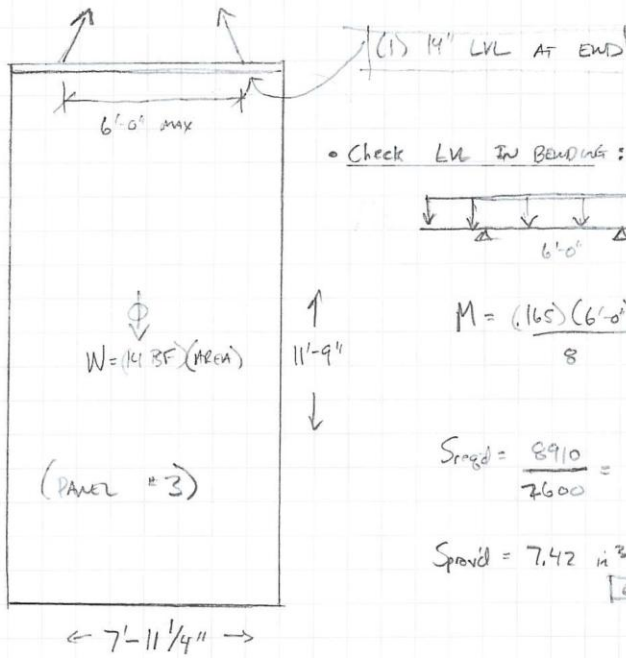 (1) 14" LVL AT END
6'-0" MAX
• Check LVL IN BENDING:
6'-0"
M = (.165)(6'-0")
8
W=(14 PSF)(AREA)
11'-9"
(PANEL #3)
Sreqd = 8910
2600
=
Sprov'd = 7.42 in³
7'-11 1/4"